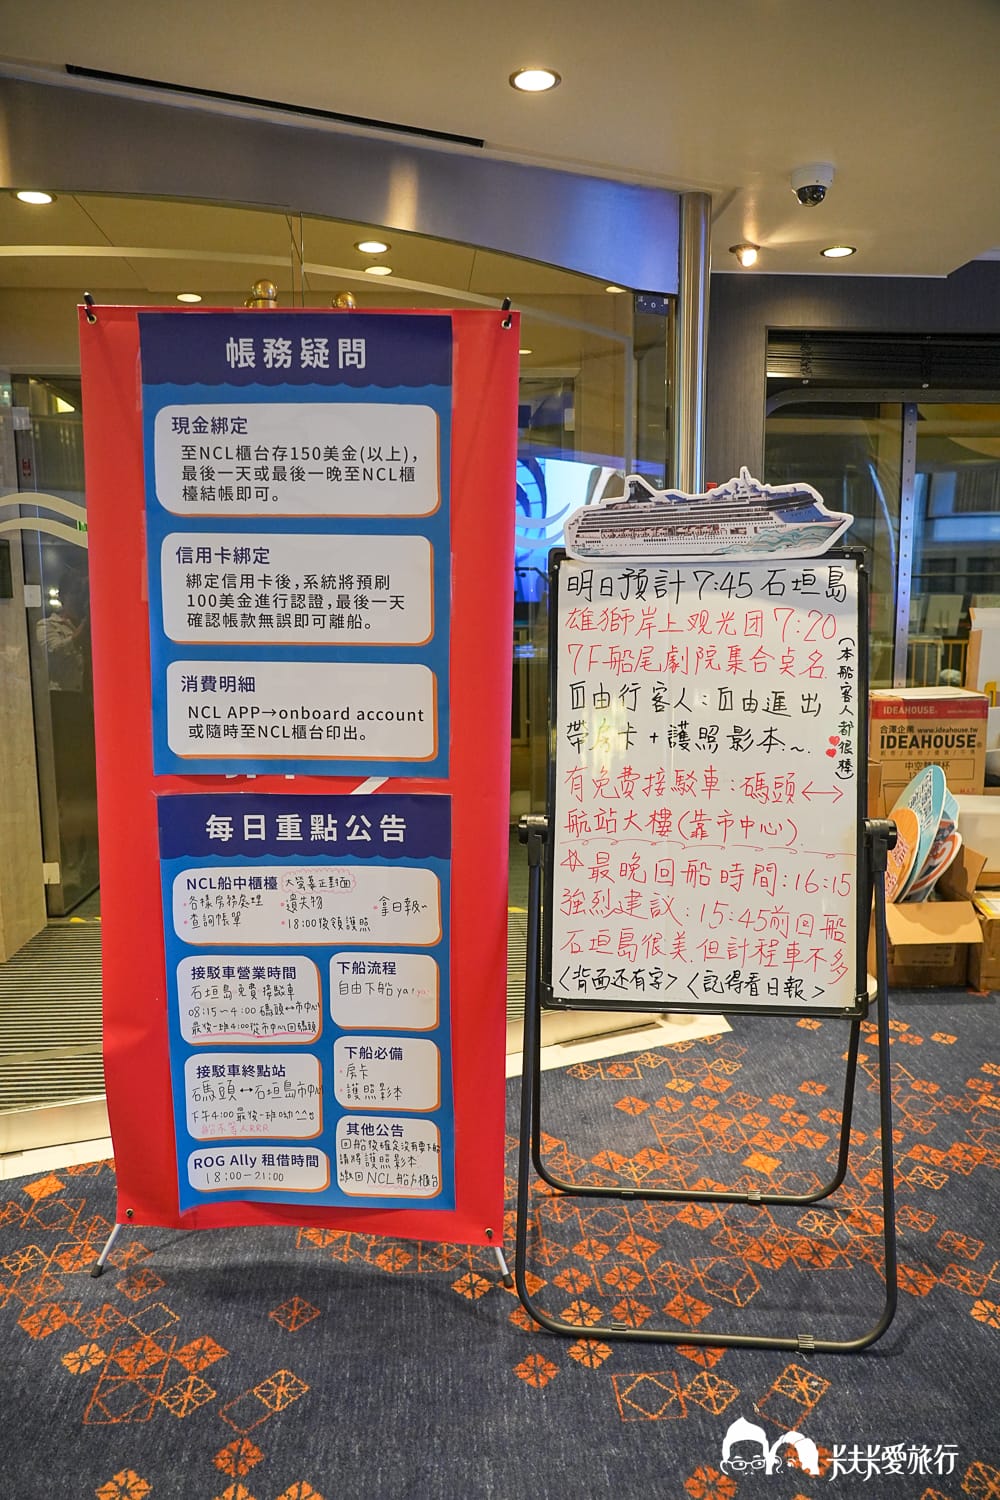 帳務疑問
現金綁定
至NCL櫃台存150美金(以上),
最後一天或最後一晚至NCL櫃
檯結帳即可。
信用卡綁定
綁定信用卡後,系統將預刷
100美金進行認證,最後一天
確認帳款無誤即可離船。
消費明細
NCL APP→onboard account
或隨時至NCL櫃台印出。
每日重點公告
NCL船中櫃檯 大螢幕正對面
·各樣房務處理 ·遺失物 ·拿日報~
·查詢帳單 ·18:00後領護照
接駁車營業時間
石垣島免費接駁車
08:15~4:00 碼頭↔市中心
最後一班4:00從市中心回碼頭
下船流程
自由下船 ya! ya!
接駁車終點站
碼頭↔石垣島市中心
下午4:00最後一班呦^^
船不等人RRR
下船必備
·房卡
·護照影本
ROG Ally 租借時間
18:00-21:00
其他公告
回船後確定沒有要下船
請將護照影本
繳回NCL船方櫃台
NORWEGIAN SPIRIT
明日預計7:45 石垣島
雄獅岸上观光团7:20
7F船尾劇院集合桌名
自由行客人:自由進出
帶房卡+護照影本~.
(本船客人都很棒)
有免費接駁車:碼頭↔
航站大樓(靠市中心).
最晚回船時間:16:15
強烈建議:15:45前回船
石垣島很美.但計程車不多
<背面还有字> <記得看日報>
IDEAHOUSE
合澤企業 www.ideahouse.tw
IDEAHOUSE
卡夫卡愛旅行